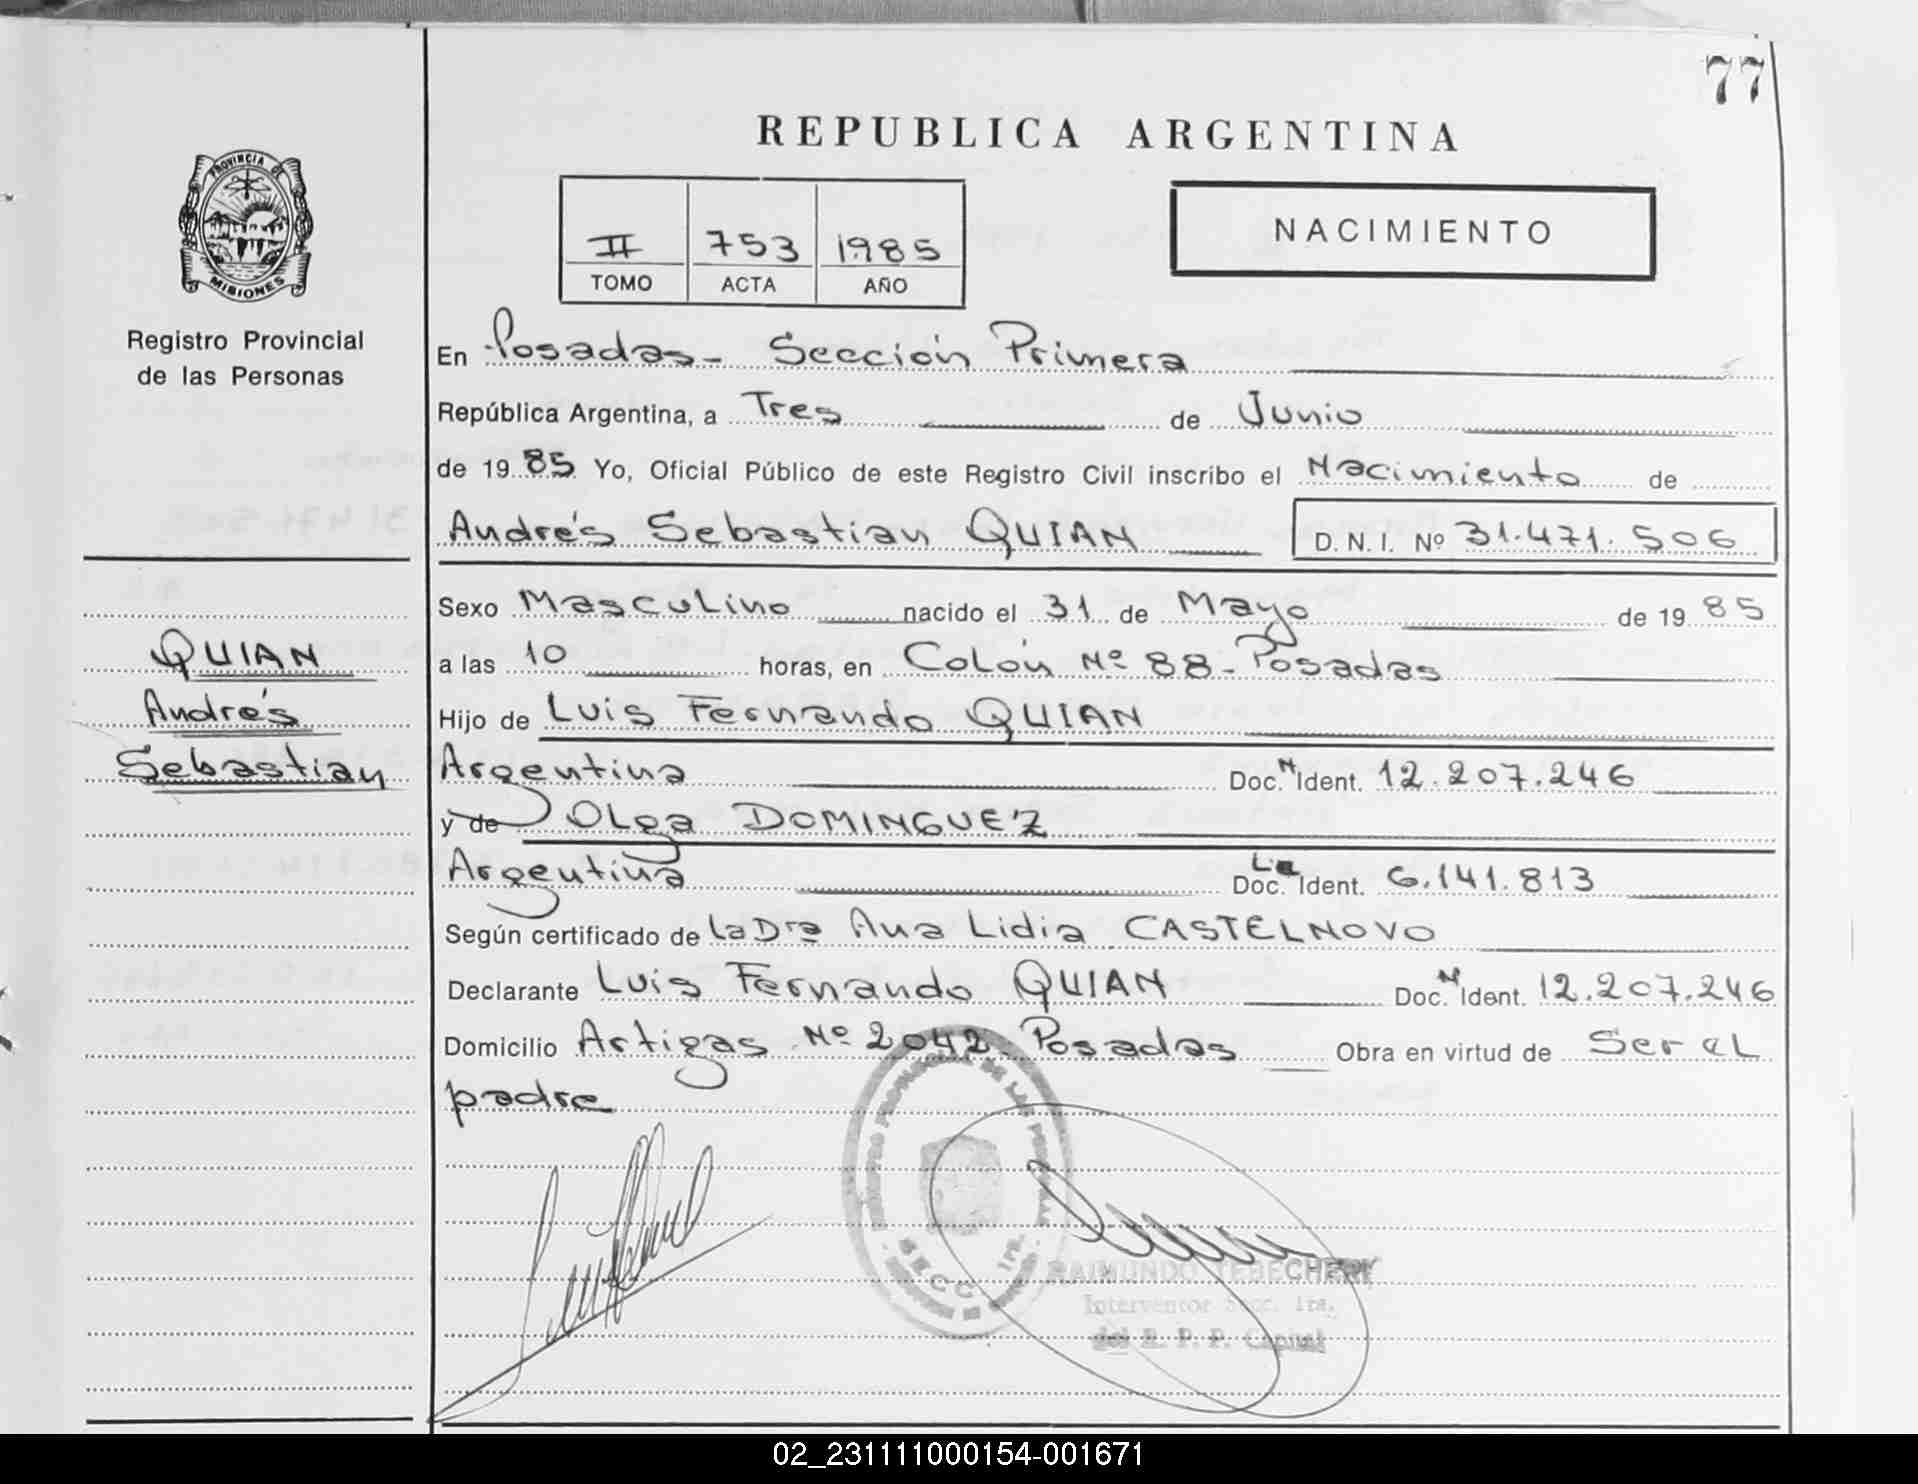 77
REPUBLICA ARGENTINA
PROVINCIA DE
MISIONES
Registro Provincial
de las Personas
II 753 1985
TOMO ACTA AÑO
NACIMIENTO
En Posadas - Sección Primera
República Argentina, a Tres de Junio
de 19 85 Yo, Oficial Público de este Registro Civil inscribo el Nacimiento de
Andrés Sebastian QUIAN D. N. I. Nº 31.471.506
Sexo Masculino nacido el 31 de Mayo de 19 85
QUIAN
Andrés
Sebastian
a las 10 horas, en Colón Nº 88 - Posadas
Hijo de Luis Fernando QUIAN
Argentina Doc. N Ident. 12.207.246
y de Olga DOMINGUEZ
Argentina Doc. Ident. 6.141.813
Según certificado de La Dra Ana Lidia CASTELNOVO
Declarante Luis Fernando QUIAN Doc. N Ident. 12.207.246
Domicilio Artigas Nº 2042 Posadas Obra en virtud de Ser el
padre
PROVINCIAL DE LAS
SECC. 1ra.
RAIMUNDO TEBECHERY
Interventor Secc. 1ra.
del R. P. P. Capital
02_231111000154-001671